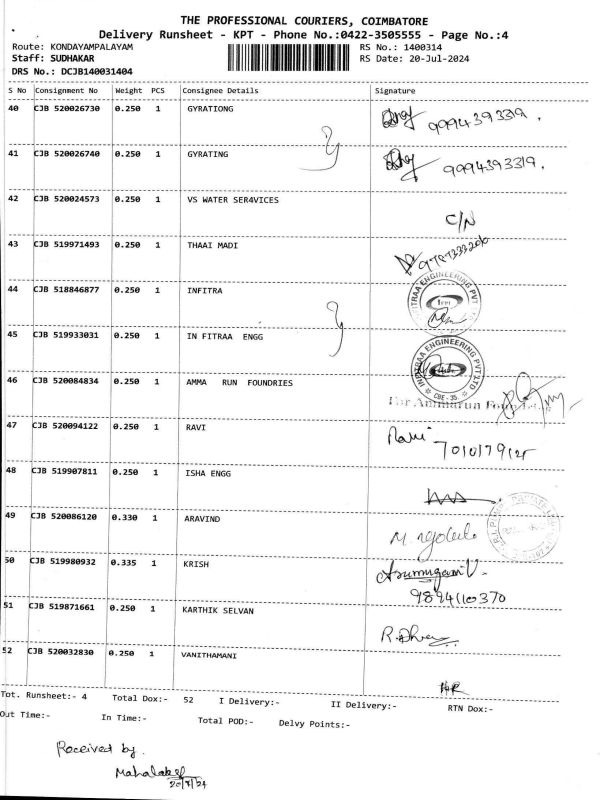 THE PROFESSIONAL COURIERS, COIMBATORE
Delivery Runsheet - KPT - Phone No.:0422-3505555 - Page No.:4
Route: KONDAYAMPALAYAM RS No.: 1400314
Staff: SUDHAKAR RS Date: 20-Jul-2024
DRS No.: DCJB140031404
S No Consignment No Weight PCS Consignee Details Signature
40 CJB 520026730 0.250 1 GYRATIONG 9994393319.
41 CJB 520026740 0.250 1 GYRATING 9994393319.
42 CJB 520024573 0.250 1 VS WATER SER4VICES C/N
43 CJB 519971493 0.250 1 THAAI MADI
44 CJB 518846877 0.250 1 INFITRA
45 CJB 519933031 0.250 1 IN FITRAA ENGG
INFITRAA ENGINEERING PVT LTD
CBE - 35.
46 CJB 520084834 0.250 1 AMMA RUN FOUNDRIES
For Ammarun
47 CJB 520094122 0.250 1 RAVI Ravi
48 CJB 519907811 0.250 1 ISHA ENGG
49 CJB 520086120 0.330 1 ARAVIND
50 CJB 519980932 0.335 1 KRISH Arumugam V.
9894110370
51 CJB 519871661 0.250 1 KARTHIK SELVAN
52 CJB 520032830 0.250 1 VANITHAMANI
Tot. Runsheet:- 4 Total Dox:- 52 I Delivery:- II Delivery:- RTN Dox:-
Out Time:- In Time:- Total POD:- Delvy Points:-
Received by.
20/7/24